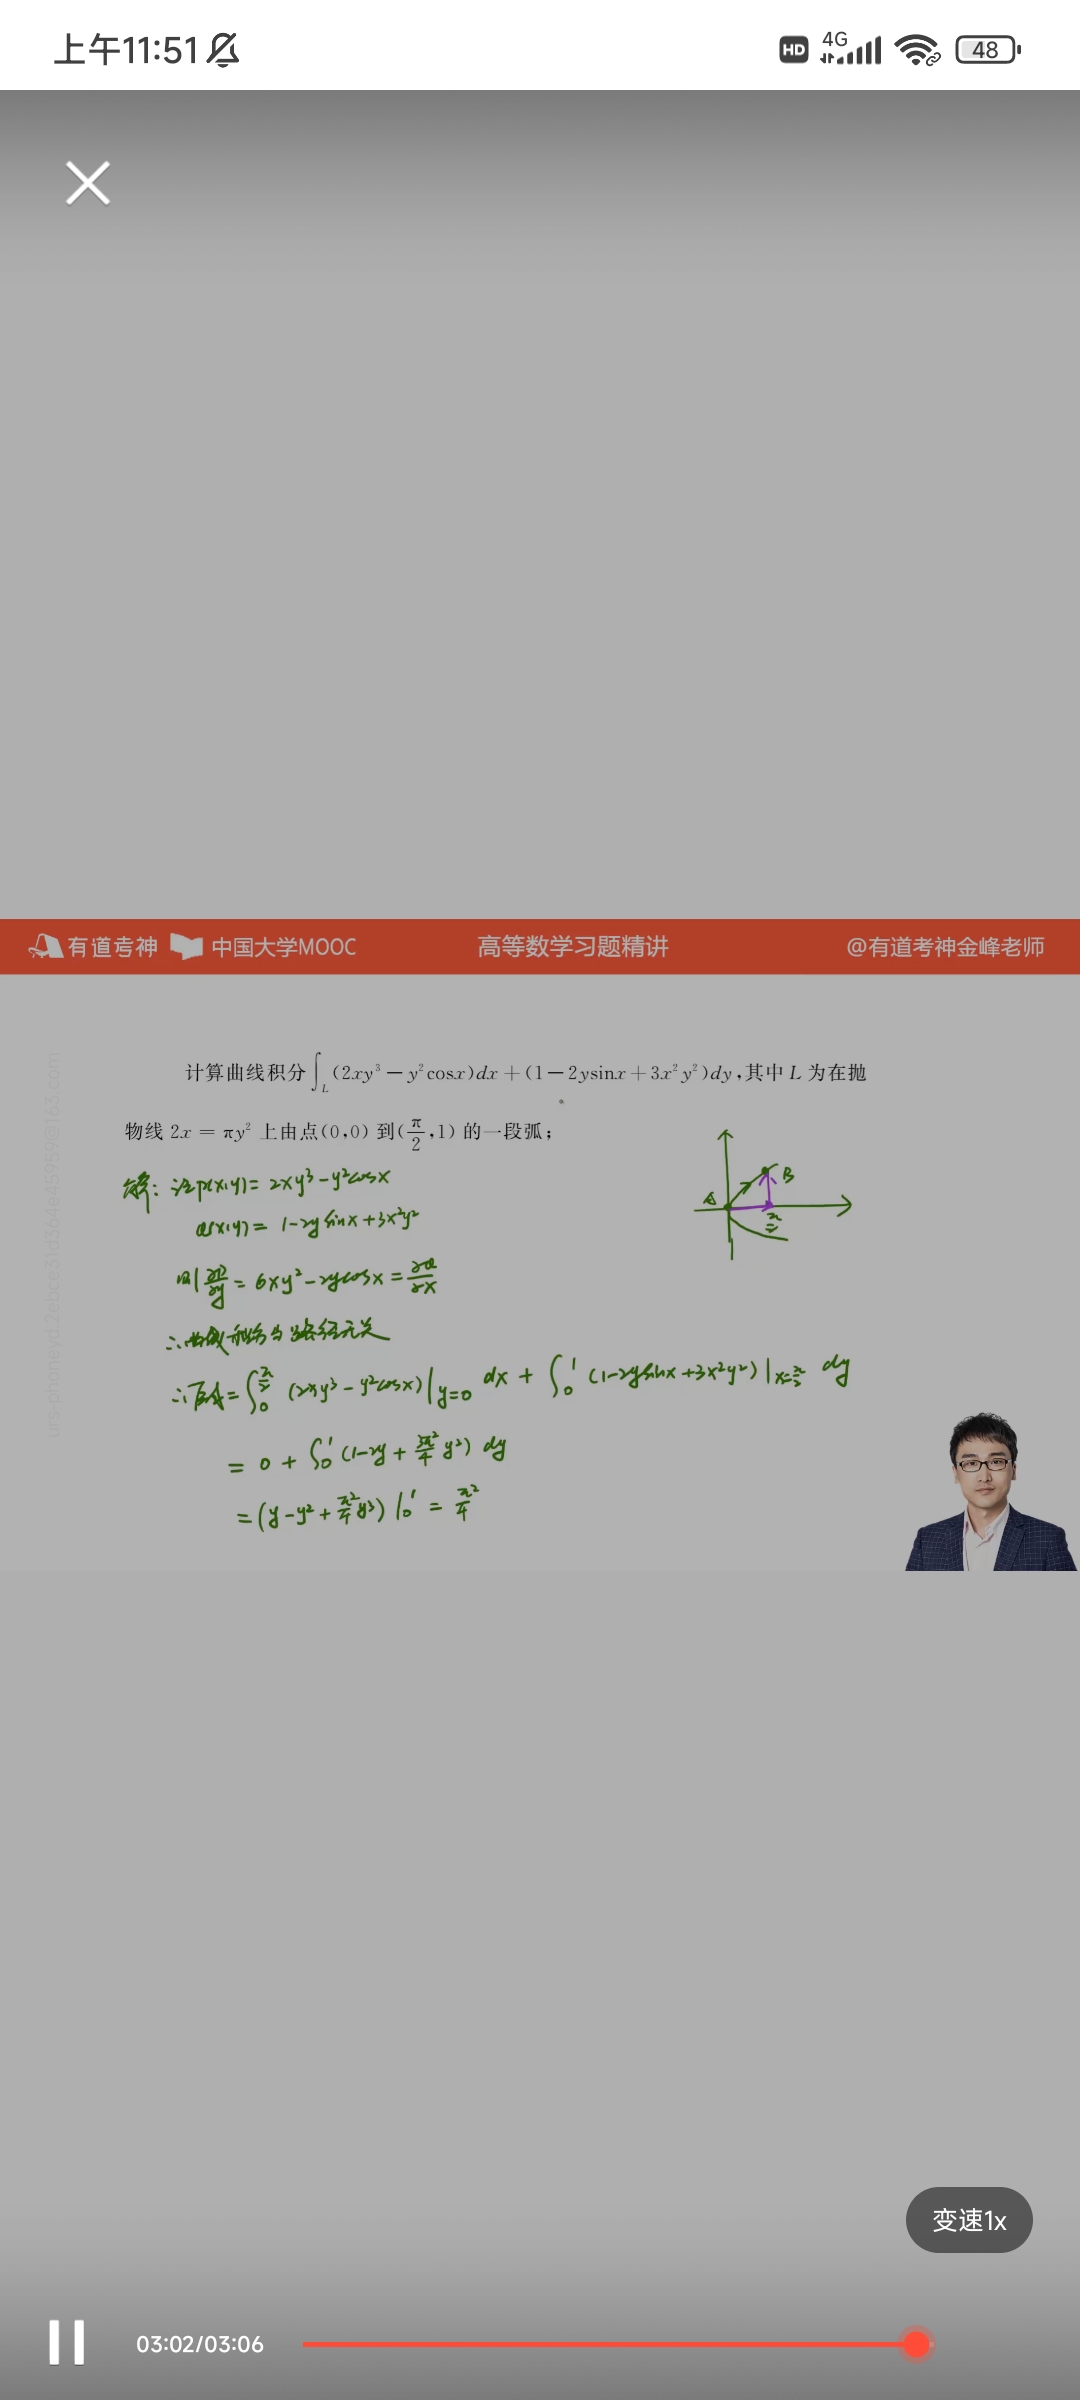 上午11:51 HD 4G 48
有道考神 中国大学MOOC 高等数学习题精讲 @有道考神金峰老师
计算曲线积分∫_L(2xy³－y²cosx)dx＋(1－2ysinx＋3x²y²)dy,其中 L 为在抛
物线 2x ＝ πy² 上由点(0,0) 到(π/2,1) 的一段弧;
解: 设P(x,y)= 2xy³-y²cosx
Q(x,y)= 1-2y sinx+3x²y²
则 ∂P/∂y = 6xy²-2ycosx = ∂Q/∂x
∴曲线积分与路径无关
∴原式=∫₀^(π/2) (2xy³-y²cosx)|y=0 dx + ∫₀¹ (1-2ysinx+3x²y²)|x=π/2 dy
= 0 + ∫₀¹ (1-2y+3π²/4 y²) dy
=(y-y²+π²/4 y³)|₀¹ = π²/4
A B
π/2
变速1x
03:02/03:06